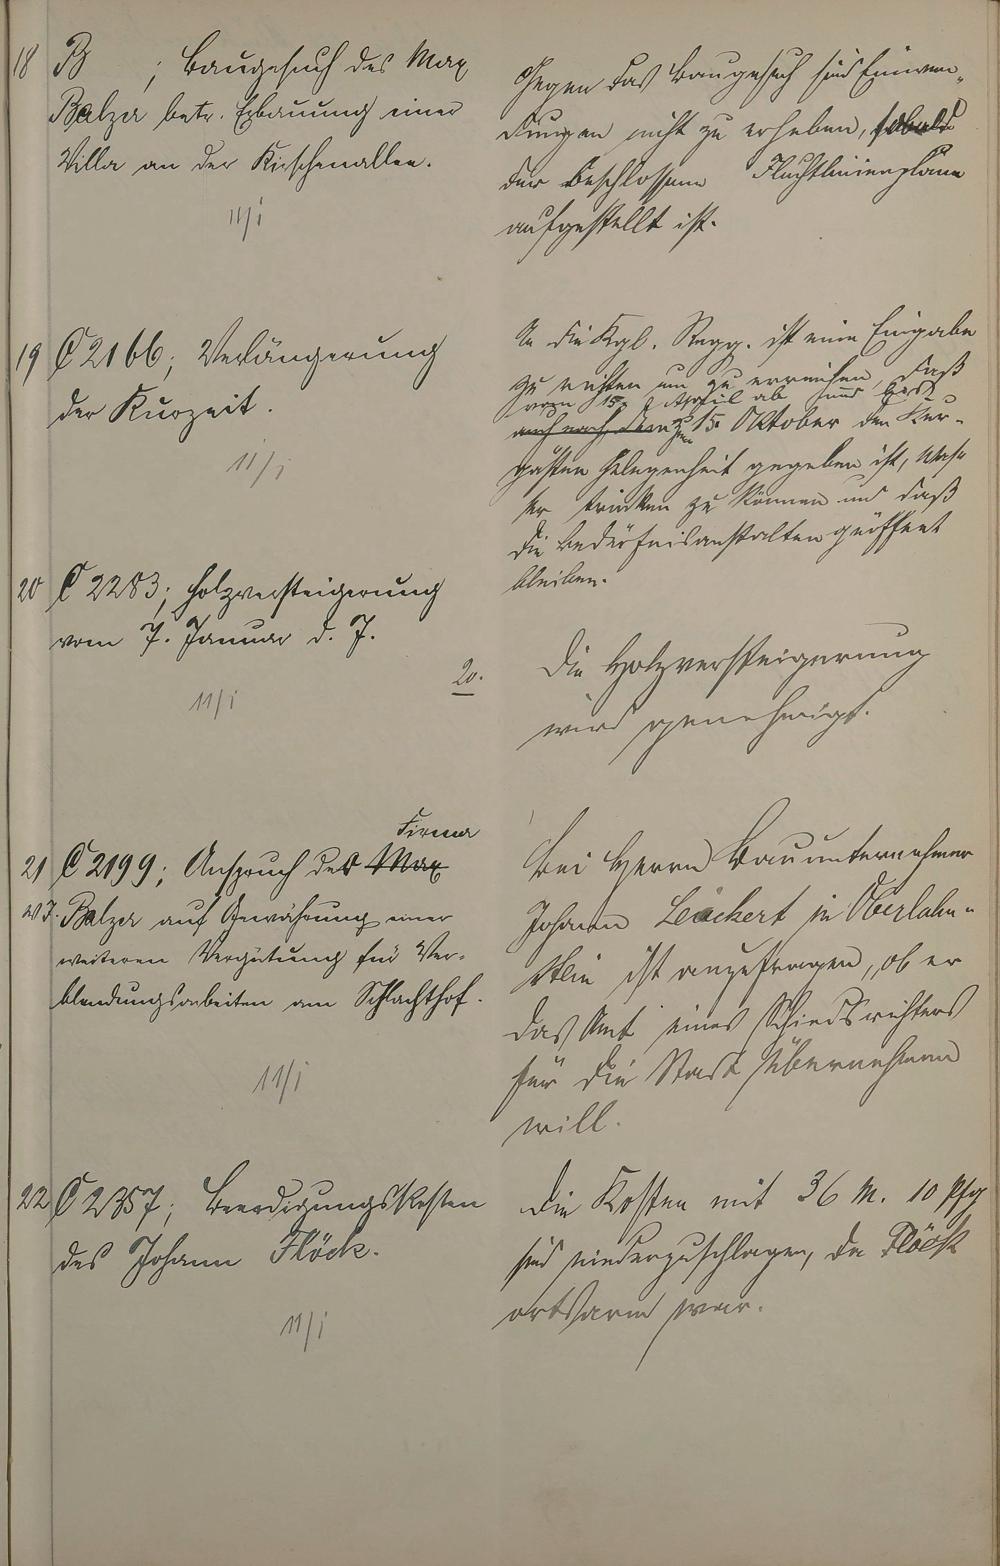 18 B ; Baugesuch des Max
Balzer betr. Erbauung einer
Villa an der Kirschenallee.
11/i
Gegen das Baugesuch sind Einwen-
dungen nicht zu erheben, sobald
der beschlossene Fluchtlinienplan
aufgestellt ist.
19 C 2166; Verlängerung
der Kurzeit.
11/i
An die Kgl. Regg. ist eine Eingabe
zu richten um zu erreichen, daß
vom 15. April ab und bis
auch nach dem zum 15. Oktober den Kur-
gästen Gelegenheit gegeben ist, Was-
ser trinken zu können und daß
die Bedürfnisanstalten geöffnet
bleiben.
20 C 2283; Holzversteigerung
vom 7. Januar d. J.
11/i
20.
Die Holzversteigerung
wird genehmigt.
Firma
21 C 2199; Anspruch des Max
W. J. Balzer auf Gewährung einer
weiteren Vergütung für Ver-
blendungsarbeiten am Schlachthof.
11/i
Bei Herrn Bauunternehmer
Johann Leickert in Oberlahn-
stein ist anzufragen, ob er
das Amt eines Schiedsrichters
für die Stadt übernehmen
will.
22 C 2357; Beerdigungskosten
des Johann Flöck.
11/i
Die Kosten mit 36 M. 10 Pfg
sind niederzuschlagen, da Flöck
ortsarm war.